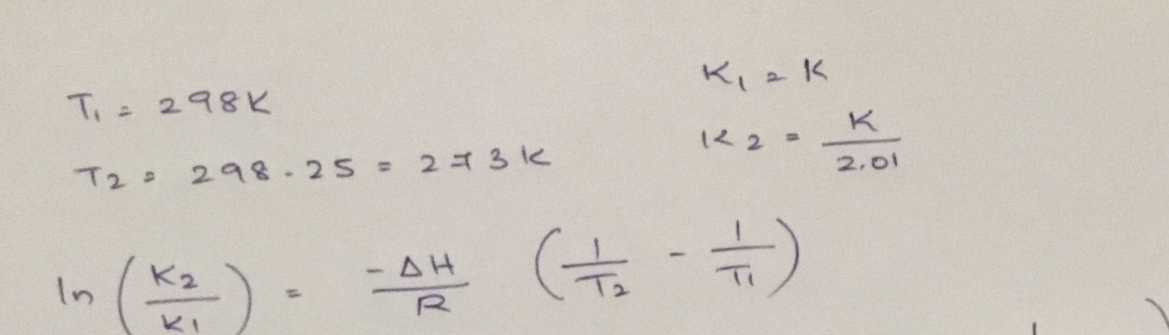 T₁ = 298K
K₁ = K
T₂ = 298 - 25 = 273K
K₂ = K / 2.01
ln (K₂ / K₁) = -ΔH / R (1 / T₂ - 1 / T₁)